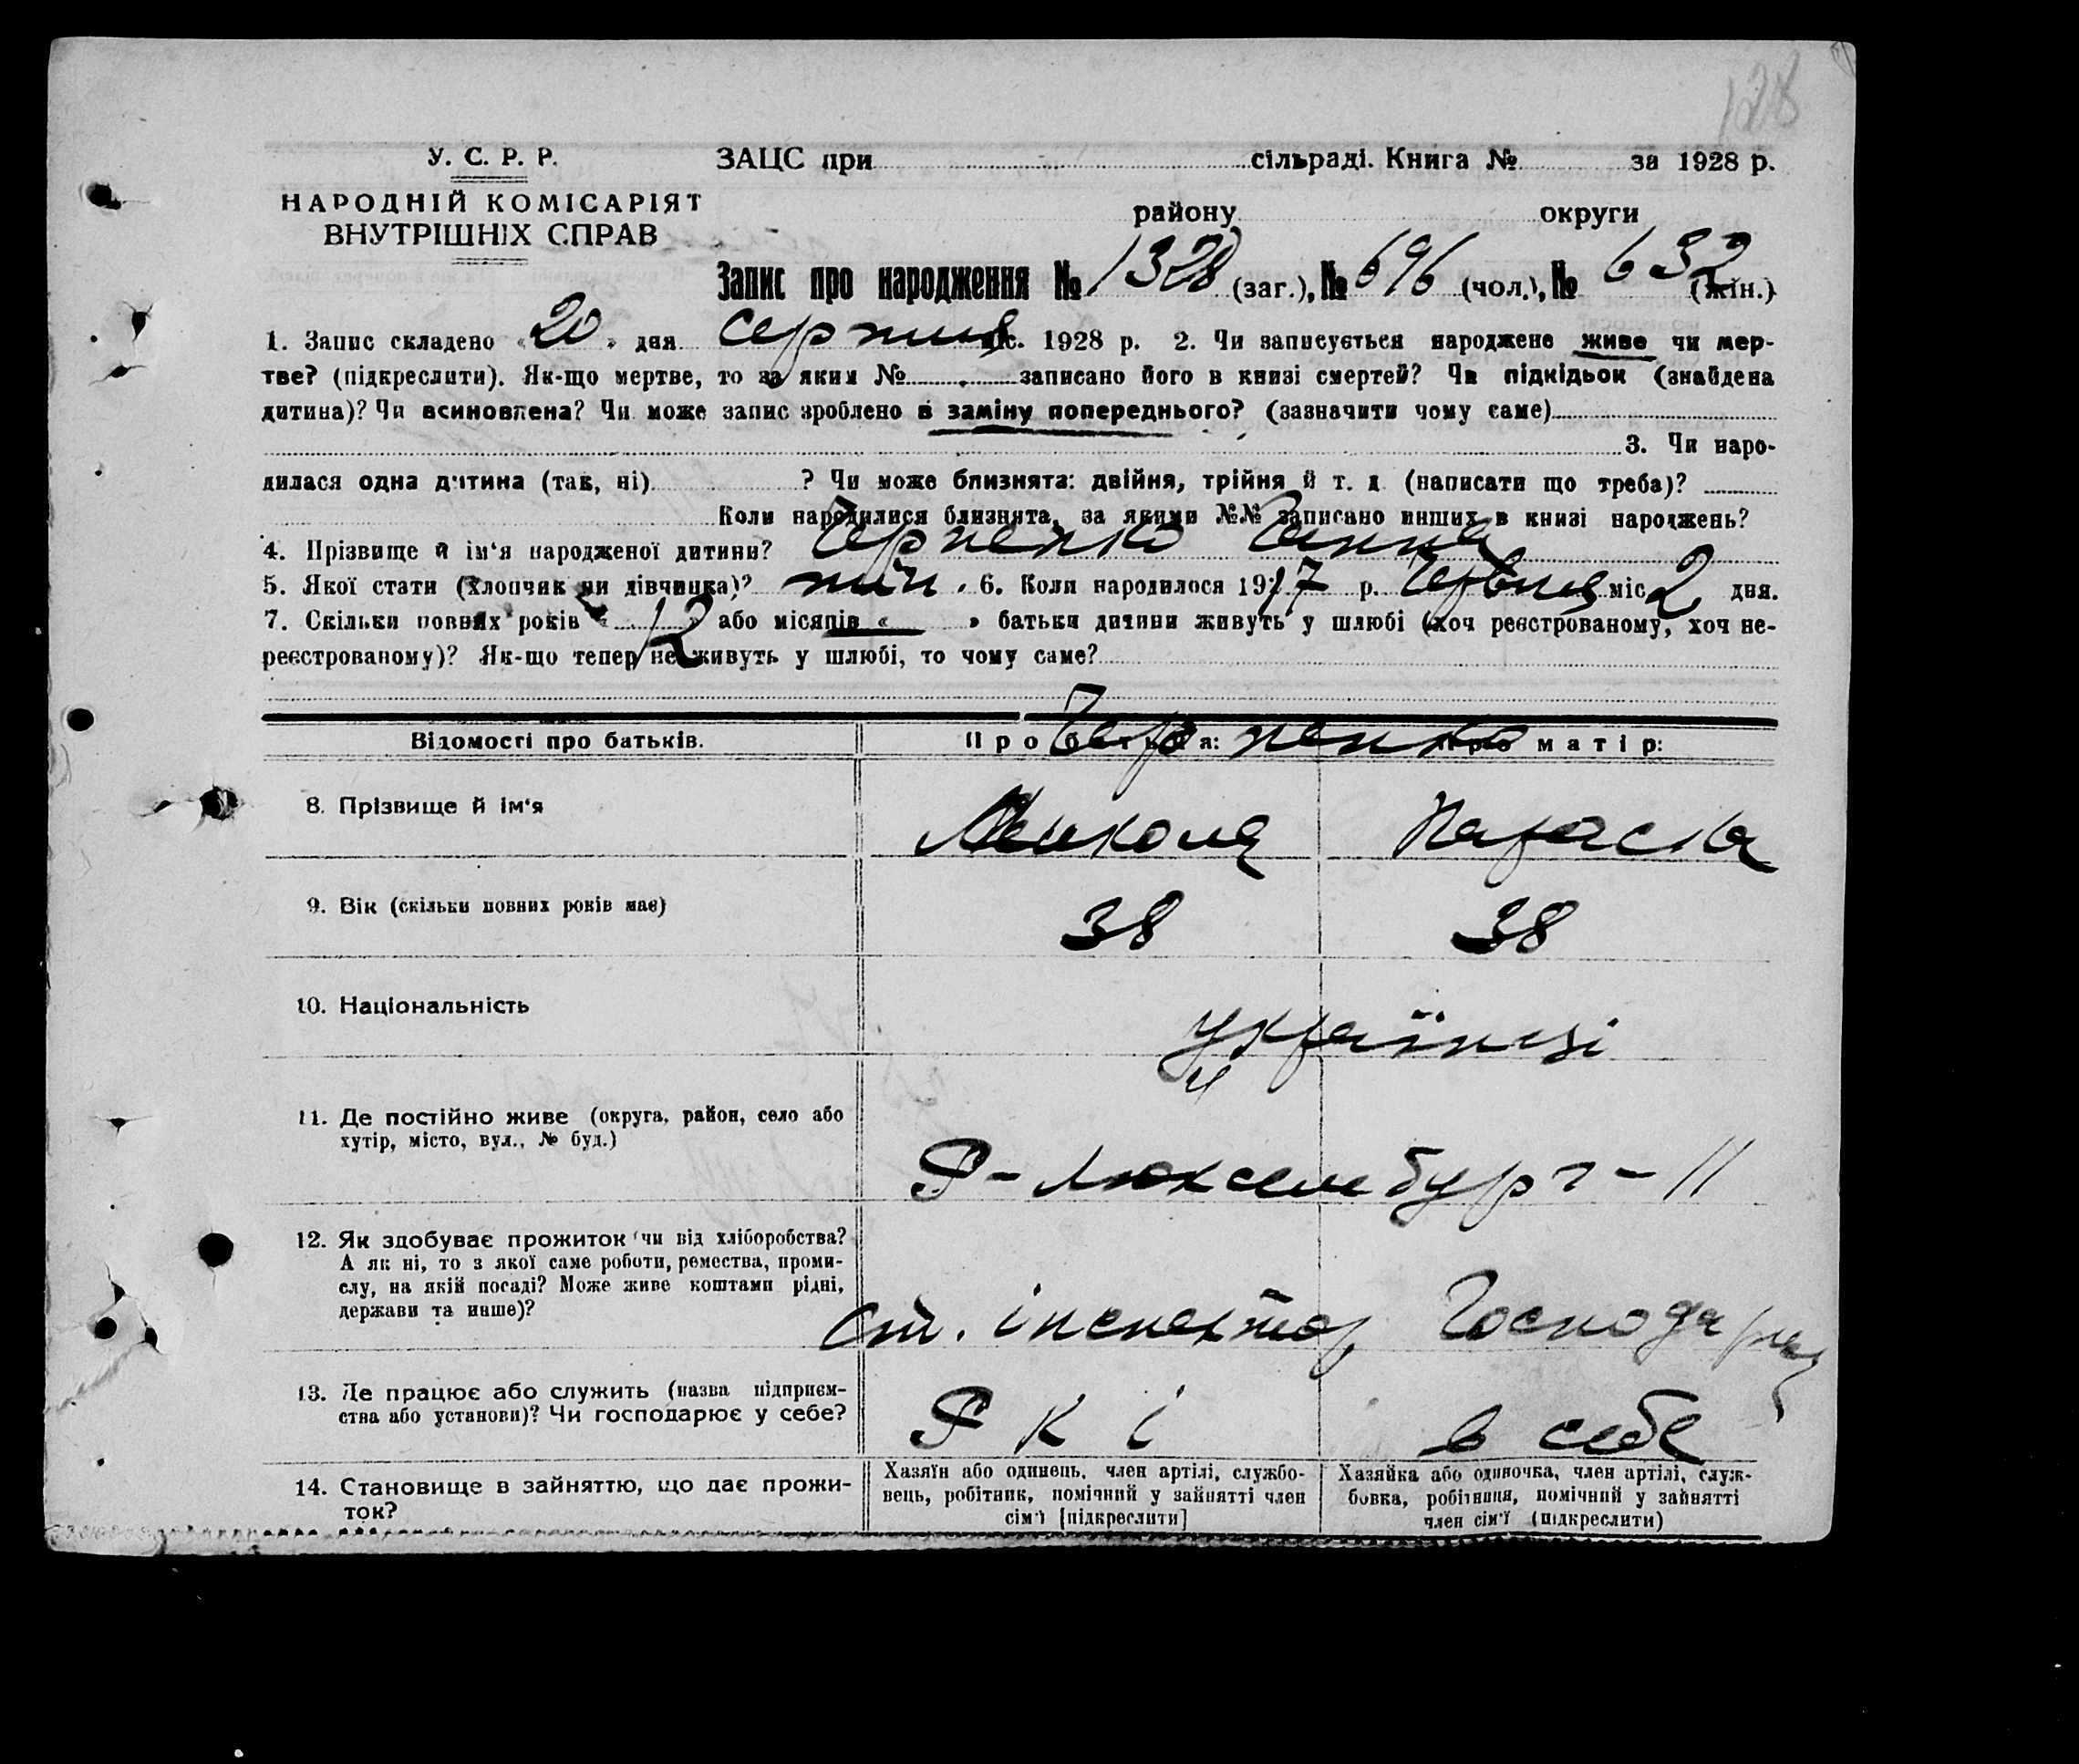 128
У. С. Р. Р.
НАРОДНІЙ КОМІСАРІЯТ
ВНУТРІШНІХ СПРАВ
ЗАЦС при сільраді. Книга № за 1928 р.
району округи
Запис про народження № 1328 (заг.), № 696 (чол.), № 632 (жін.)
1. Запис складено « 20 » дня серпня міс. 1928 р. 2. Чи записується народжене живе чи мер-
тве? (підкреслити). Як-що мертве, то за яким № записано його в книзі смертей? Чи підкідьок (знайдена
дитина)? Чи всиновлена? Чи може запис зроблено в заміну попереднього? (зазначити чому саме)
3. Чи наро-
дилася одна дитина (так, ні) ? Чи може близнята: двійня, трійня й т. д. (написати що треба)?
Коли народилися близнята, за якими №№ записано инших в книзі народжень?
4. Прізвище й ім'я народженої дитини? Черненко Ганна
5. Якої стати (хлопчик чи дівчинка)? 6. Коли народилося 1917 р. Червня міс 2 дня.
7. Скільки повних років « 12 » або місяців « » батьки дитини живуть у шлюбі (хоч реєстрованому, хоч не-
реєстрованому)? Як-що тепер не живуть у шлюбі, то чому саме?
Відомості про батьків. Про батька: Про матір:
Черненко
8. Прізвище й ім'я Микола Параска
9. Вік (скільки повних років має) 38 38
10. Національність українці
11. Де постійно живе (округа, район, село або
хутір, місто, вул., № буд.)
Р-Люксембург-11
12. Як здобуває прожиток (чи від хліборобства?
А як ні, то з якої саме роботи, ремества, проми-
слу, на якій посаді? Може живе коштами рідні,
держави та инше)?
ст. інспектор Господарює
13. Де працює або служить (назва підприєм-
ства або установи)? Чи господарює у себе?
Р К І в себе
14. Становище в зайняттю, що дає прожи-
ток?
Хазяїн або одинець, член артілі, службо-
вець, робітник, помічний у зайнятті член
сім'ї [підкреслити]
Хазяйка або одиночка, член артілі, служ-
бовка, робітниця, помічний у зайнятті
член сім'ї (підкреслити)